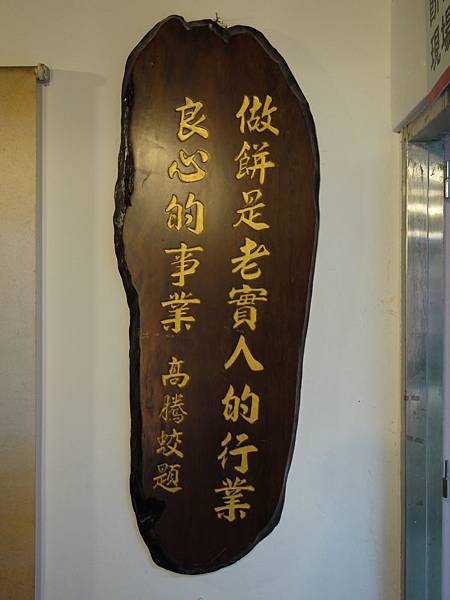 做餅是老實人的行業
良心的事業
高騰蛟題
現場